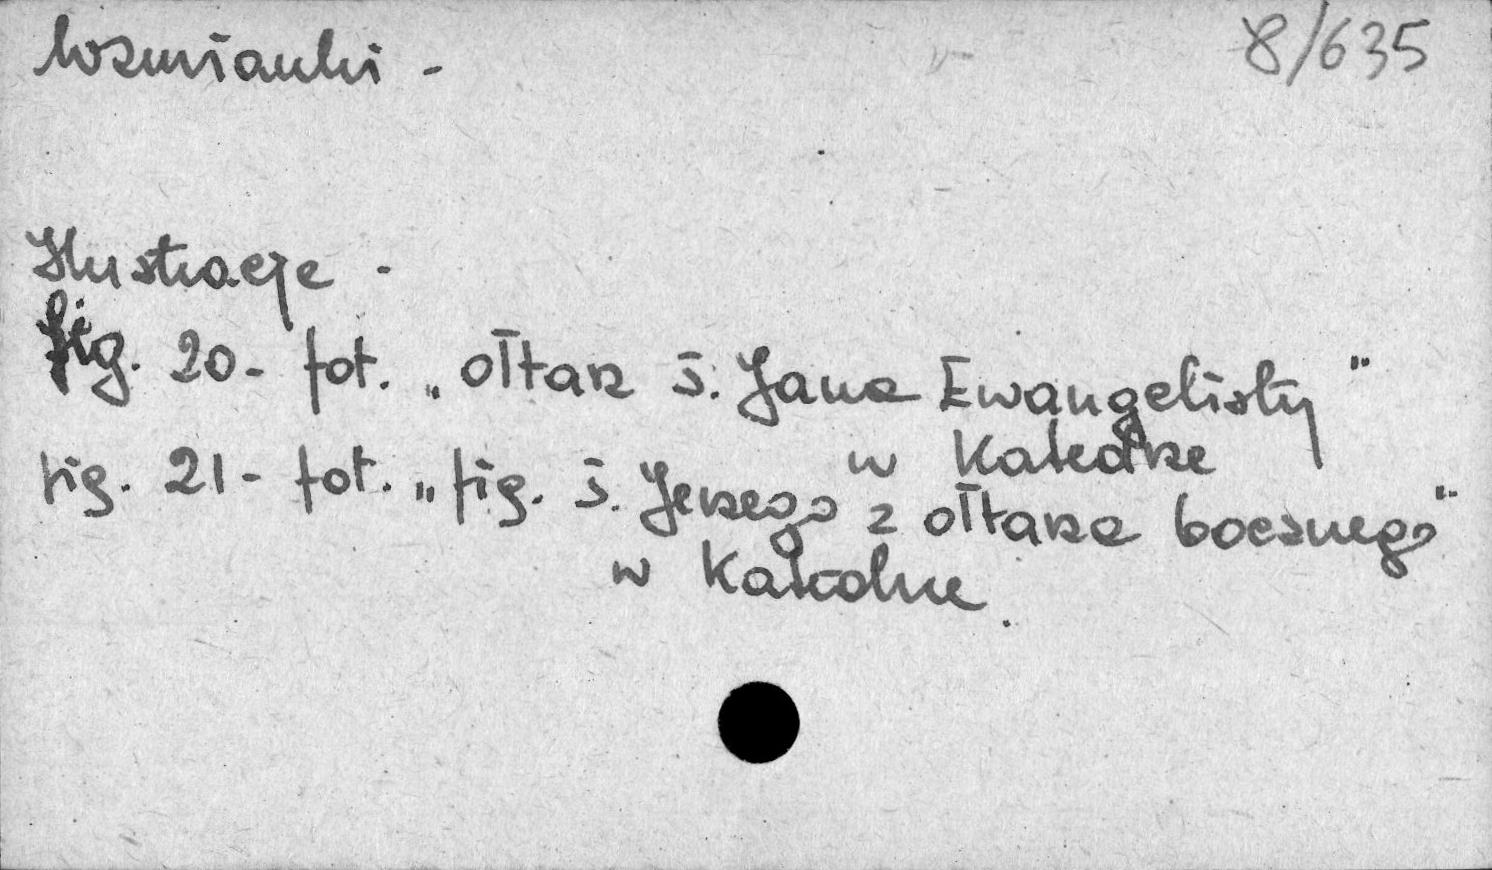 wzmianki -
8/635
Ilustracje -
fig. 20 - fot. „ołtarz ś. Jana Ewangelisty”
w Katedrze
fig. 21 - fot. „fig. ś. Jerzego z ołtarza bocznego”
w Katedrze.